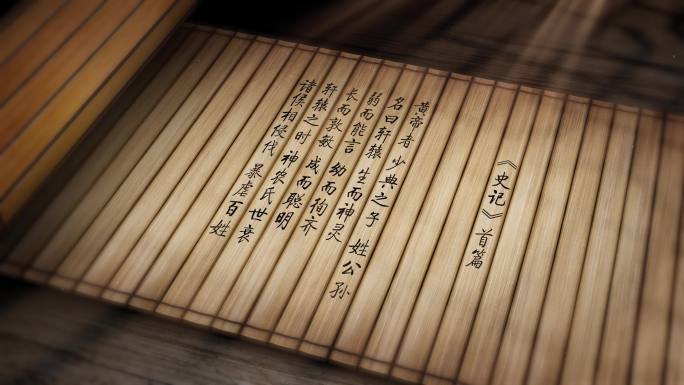 《史记》首篇
黄帝者 少典之子 姓公孙
名曰轩辕 生而神灵
弱而能言 幼而徇齐
长而敦敏 成而聪明
轩辕之时 神农氏世衰
诸侯相侵伐 暴虐百姓